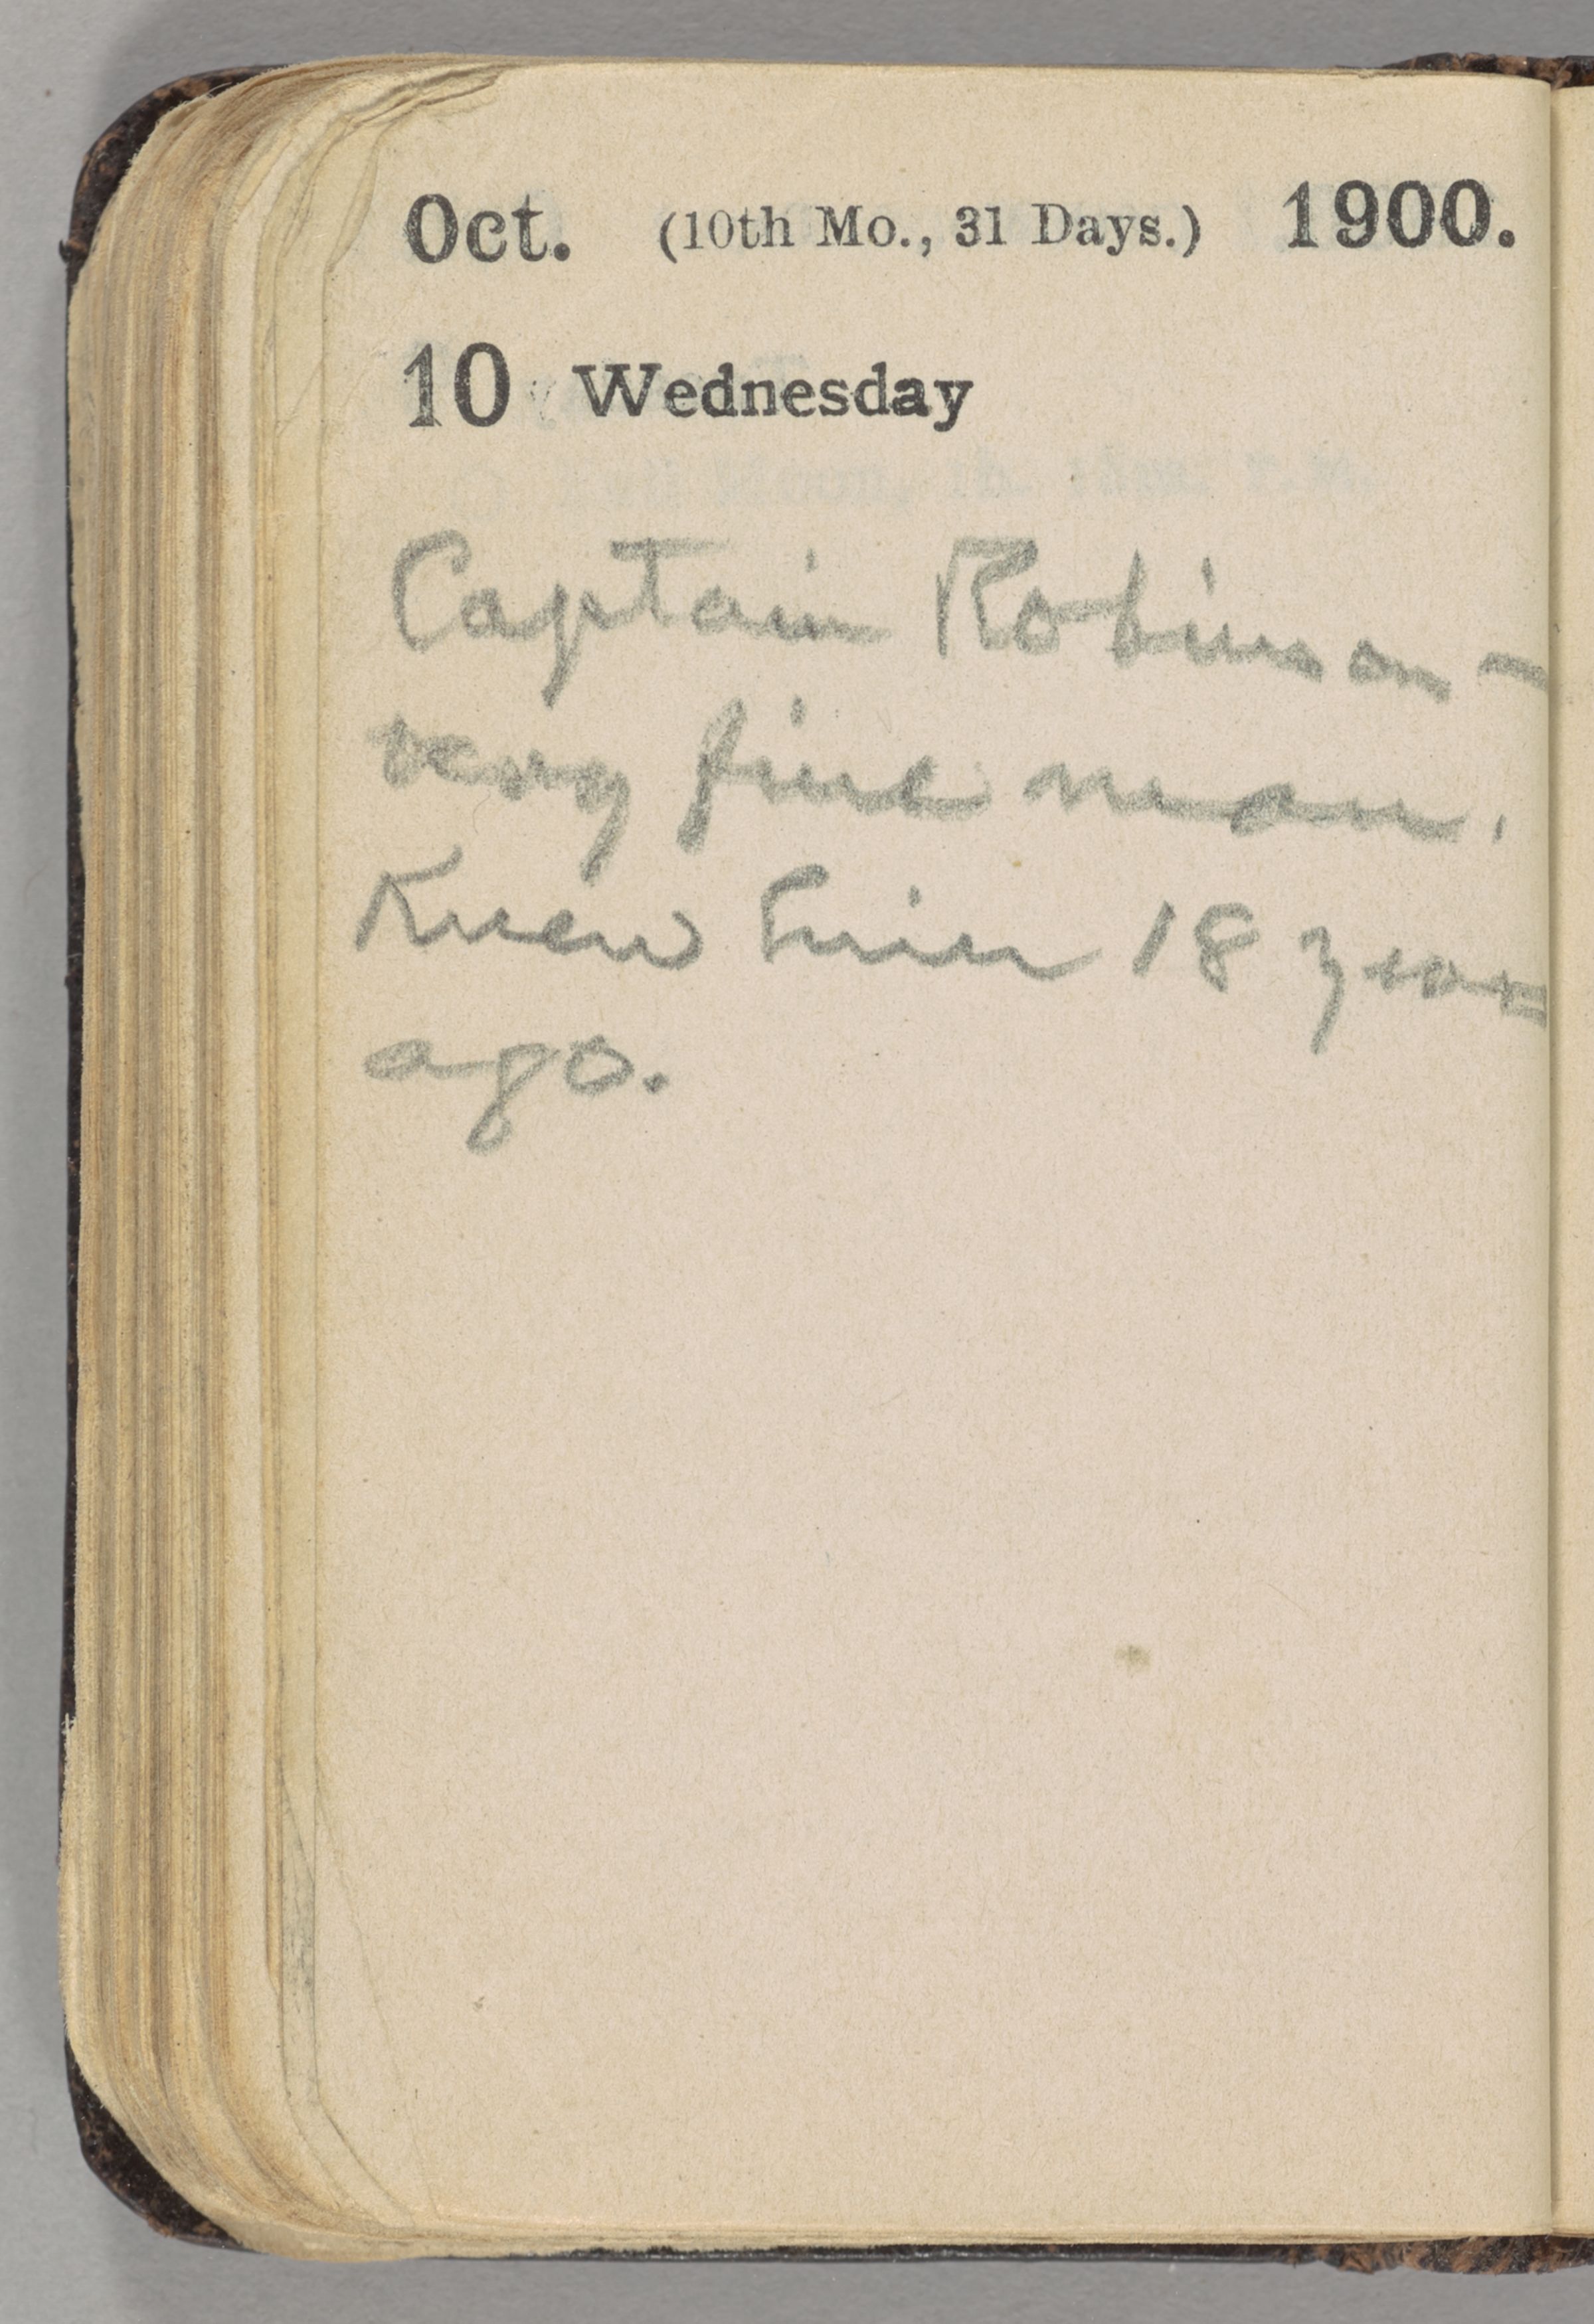 Oct. (10th Mo., 31 Days.) 1900.
10 Wednesday
Captain Robinson –
very fine man.
Knew him 18 years
ago.